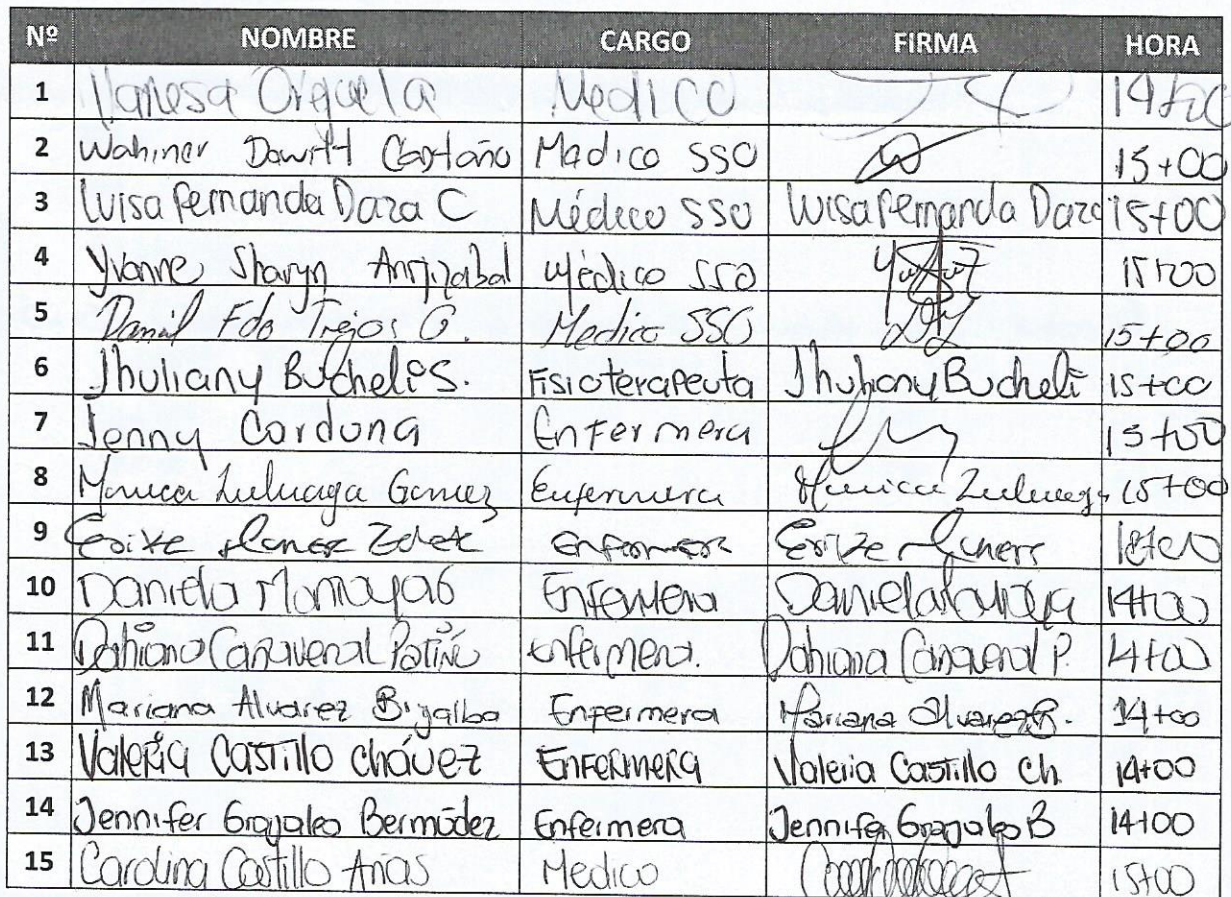 Nº NOMBRE CARGO FIRMA HORA
1 Vanesa Orjuela Medico 14+00
2 Wahiner Dawitt Castaño Madico SSO 15+00
3 Luisa Fernanda Daza C Médico SSO Luisa Fernanda Daza 15+00
4 Yvonne Sharyn Médico SSO 15+00
5 Daniel Fdo Trejos O. Medico SSO 15+00
6 Jhuliany Bucheli S. Fisioterapeuta Jhuliany Bucheli 15+00
7 Jenny Cardona Enfermera 15+00
8 Monica Zuluaga Gomez Enfermera Monica Zuluaga 15+00
9 18+00
10 Daniela Enfermera Daniela 14+00
11 Dahiana Cañaveral Patiño Enfermera. Dahiana Cañaveral P. 14+00
12 Mariana Alvarez Enfermera Mariana Alvarez B. 14+00
13 Valeria Castillo Chávez Enfermera Valeria Castillo Ch. 14+00
14 Jennifer Grajales Bermúdez Enfermera Jennifer Grajales B 14+00
15 Carolina Castillo Arias Medico 15+00